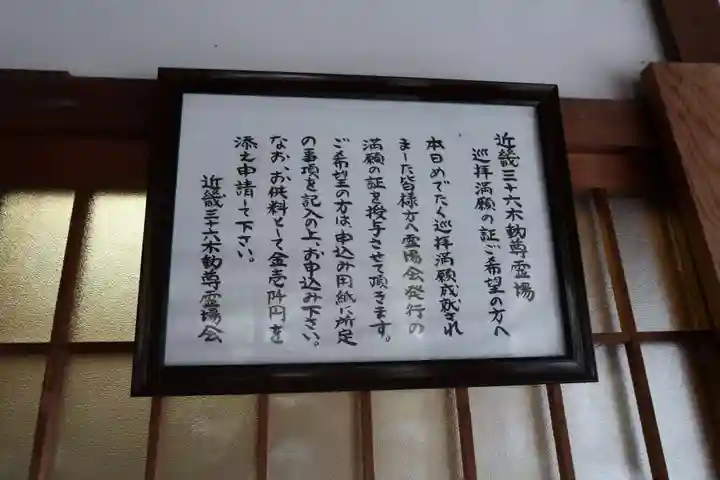 近畿三十六不動尊霊場
巡拝満願の証ご希望の方へ
本日めでたく巡拝満願成就され
ました皆様方へ霊場会発行の
満願の証を授与させて頂きます。
ご希望の方は、申込み用紙に所定
の事項を記入の上、お申込み下さい。
なお、お供料として金壱阡円を
添え申請して下さい。
近畿三十六不動尊霊場会